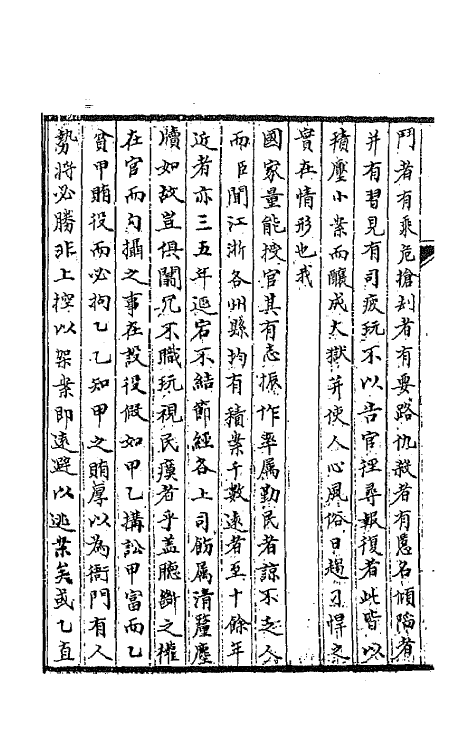 鬥者有乘危搶刦者有要路仇殺者有匿名傾陷者
并有習見有司疲玩不以告官徑尋報復者此皆以
積壓小案而釀成大獄并使人心風俗日趨刁悍之
實在情形也我
國家量能授官其有志振作率属勤民者諒不乏人
而臣聞江浙各州縣均有積案千數遠者至十餘年
近者亦三五年延宕不結節經各上司飭属清釐塵
牘如故豈俱闒冗不職玩視民瘼者乎盖聽斷之權
在官而勾攝之事在設役假如甲乙搆訟甲富而乙
貧甲賄役而必拘乙乙知甲之賄厚以為衙門有人
勢將必勝非上控以架案即遠避以逃案矣或乙直